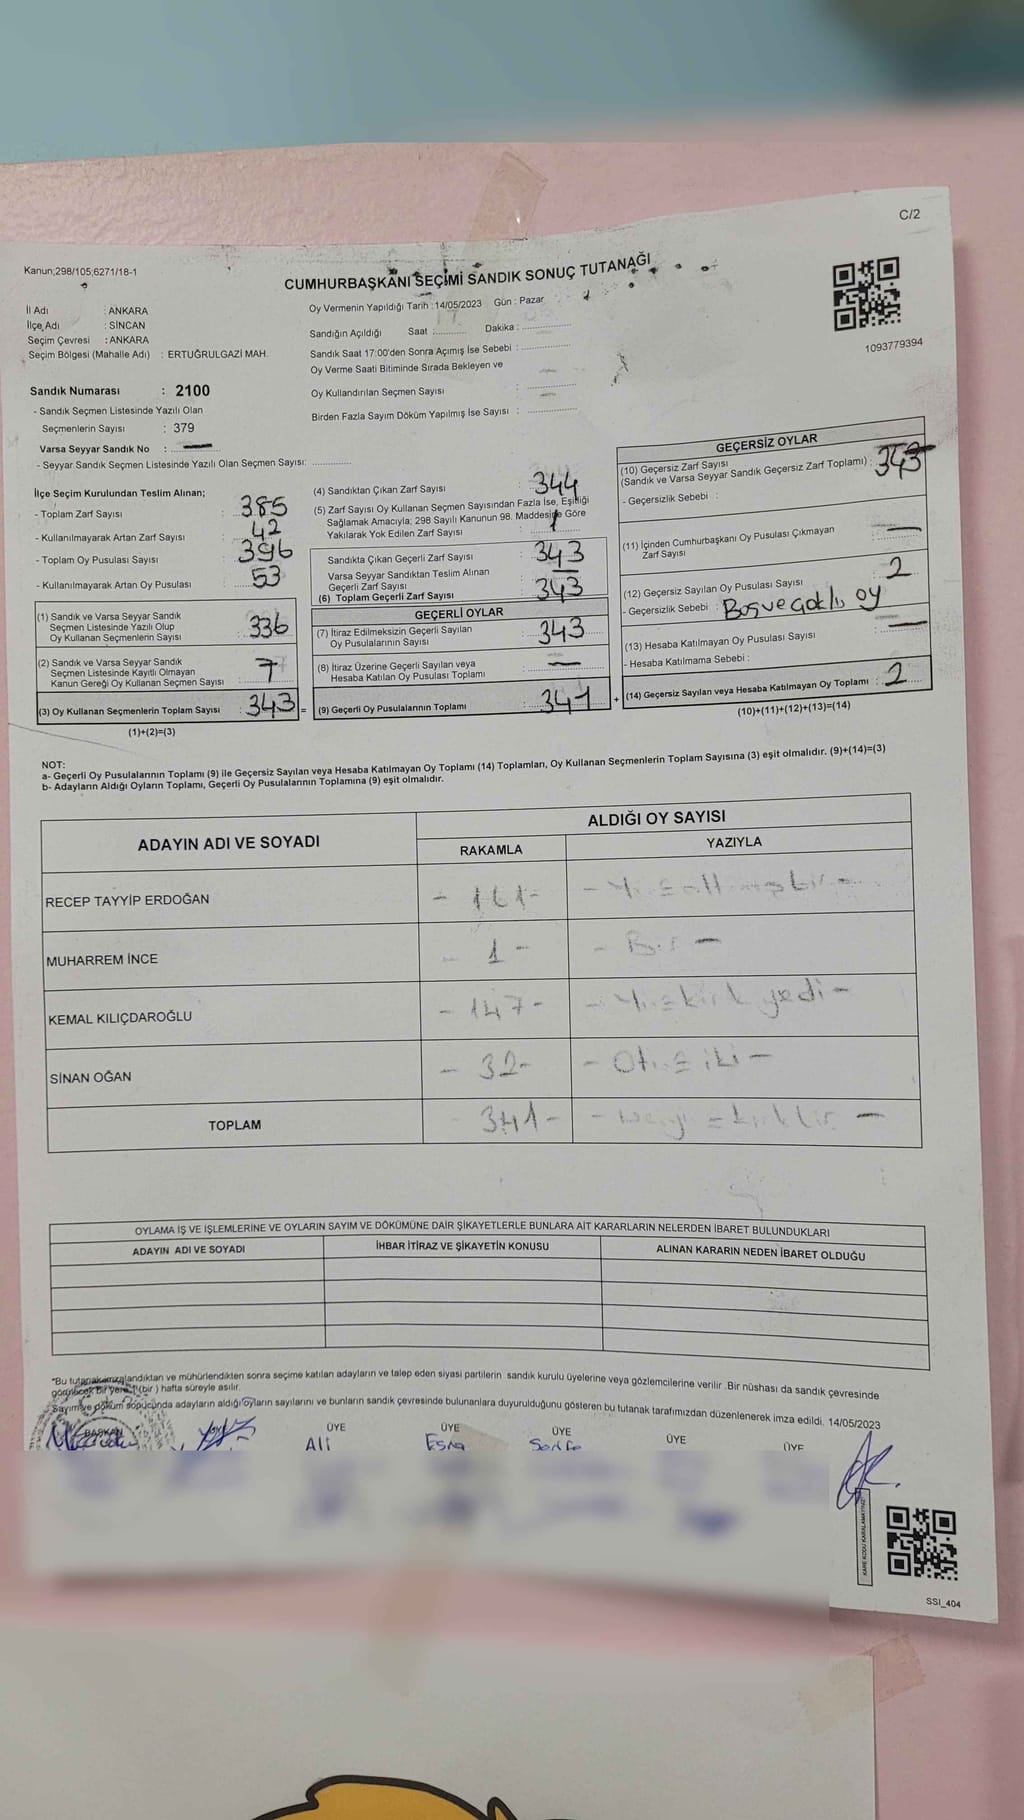 C/2
Kanun;298/105;6271/18-1
CUMHURBAŞKANI SEÇİMİ SANDIK SONUÇ TUTANAĞI
1093779394
İl Adı : ANKARA
İlçe Adı : SİNCAN
Seçim Çevresi : ANKARA
Seçim Bölgesi (Mahalle Adı) : ERTUĞRULGAZİ MAH.
Oy Vermenin Yapıldığı Tarih :14/05/2023 Gün : Pazar
Sandığın Açıldığı Saat : Dakika :
Sandık Saat 17:00'den Sonra Açımış İse Sebebi :
Oy Verme Saati Bitiminde Sırada Bekleyen ve
Oy Kullandırılan Seçmen Sayısı
Birden Fazla Sayım Döküm Yapılmış İse Sayısı :
Sandık Numarası : 2100
- Sandık Seçmen Listesinde Yazılı Olan
Seçmenlerin Sayısı : 379
Varsa Seyyar Sandık No : —
- Seyyar Sandık Seçmen Listesinde Yazılı Olan Seçmen Sayısı:
İlçe Seçim Kurulundan Teslim Alınan;
- Toplam Zarf Sayısı : 385
- Kullanılmayarak Artan Zarf Sayısı : 42
- Toplam Oy Pusulası Sayısı : 396
- Kullanılmayarak Artan Oy Pusulası : 53
(1) Sandık ve Varsa Seyyar Sandık
Seçmen Listesinde Yazılı Olup
Oy Kullanan Seçmenlerin Sayısı : 336
(2) Sandık ve Varsa Seyyar Sandık
Seçmen Listesinde Kayıtlı Olmayan
Kanun Gereği Oy Kullanan Seçmen Sayısı : 7
(3) Oy Kullanan Seçmenlerin Toplam Sayısı : 343 =
(1)+(2)=(3)
(4) Sandıktan Çıkan Zarf Sayısı : 344
(5) Zarf Sayısı Oy Kullanan Seçmen Sayısından Fazla İse, Eşitliği
Sağlamak Amacıyla; 298 Sayılı Kanunun 98. Maddesine Göre
Yakılarak Yok Edilen Zarf Sayısı : 1
Sandıkta Çıkan Geçerli Zarf Sayısı : 343
Varsa Seyyar Sandıktan Teslim Alınan
Geçerli Zarf Sayısı : —
(6) Toplam Geçerli Zarf Sayısı : 343
GEÇERLİ OYLAR
(7) İtiraz Edilmeksizin Geçerli Sayılan
Oy Pusulalarının Sayısı : 343
(8) İtiraz Üzerine Geçerli Sayılan veya
Hesaba Katılan Oy Pusulası Toplamı : —
(9) Geçerli Oy Pusulalarının Toplamı : 341 +
GEÇERSİZ OYLAR
(10) Geçersiz Zarf Sayısı
(Sandık ve Varsa Seyyar Sandık Geçersiz Zarf Toplamı) : 343
- Geçersizlik Sebebi :
(11) İçinden Cumhurbaşkanı Oy Pusulası Çıkmayan
Zarf Sayısı : —
(12) Geçersiz Sayılan Oy Pusulası Sayısı : 2
- Geçersizlik Sebebi : Boş ve çoklu oy
(13) Hesaba Katılmayan Oy Pusulası Sayısı : —
- Hesaba Katılmama Sebebi :
(14) Geçersiz Sayılan veya Hesaba Katılmayan Oy Toplamı : 2
(10)+(11)+(12)+(13)=(14)
NOT:
a- Geçerli Oy Pusulalarının Toplamı (9) ile Geçersiz Sayılan veya Hesaba Katılmayan Oy Toplamı (14) Toplamları, Oy Kullanan Seçmenlerin Toplam Sayısına (3) eşit olmalıdır. (9)+(14)=(3)
b- Adayların Aldığı Oyların Toplamı, Geçerli Oy Pusulalarının Toplamına (9) eşit olmalıdır.
ADAYIN ADI VE SOYADI
ALDIĞI OY SAYISI
RAKAMLA YAZIYLA
RECEP TAYYİP ERDOĞAN - 161 - - Yüzaltmışbir -
MUHARREM İNCE - 1 - - Bir -
KEMAL KILIÇDAROĞLU - 147 - - Yüzkırk yedi -
SİNAN OĞAN - 32 - - Otuz iki -
TOPLAM - 341 -
OYLAMA İŞ VE İŞLEMLERİNE VE OYLARIN SAYIM VE DÖKÜMÜNE DAİR ŞİKAYETLERLE BUNLARA AİT KARARLARIN NELERDEN İBARET BULUNDUKLARI
ADAYIN ADI VE SOYADI İHBAR İTİRAZ VE ŞİKAYETİN KONUSU ALINAN KARARIN NEDEN İBARET OLDUĞU
"Bu tutanak imzalandıktan ve mühürlendikten sonra seçime katılan adayların ve talep eden siyasi partilerin sandık kurulu üyelerine veya gözlemcilerine verilir. Bir nüshası da sandık çevresinde
görülecek bir yere 1 (bir) hafta süreyle asılır.
Sayım ve döküm sonucunda adayların aldığı oyların sayılarını ve bunların sandık çevresinde bulunanlara duyurulduğunu gösteren bu tutanak tarafımızdan düzenlenerek imza edildi. 14/05/2023
BAŞKAN ÜYE ÜYE ÜYE ÜYE ÜYE
Ali Esra
KARE KODU KARALAMAYINIZ
SSI_404